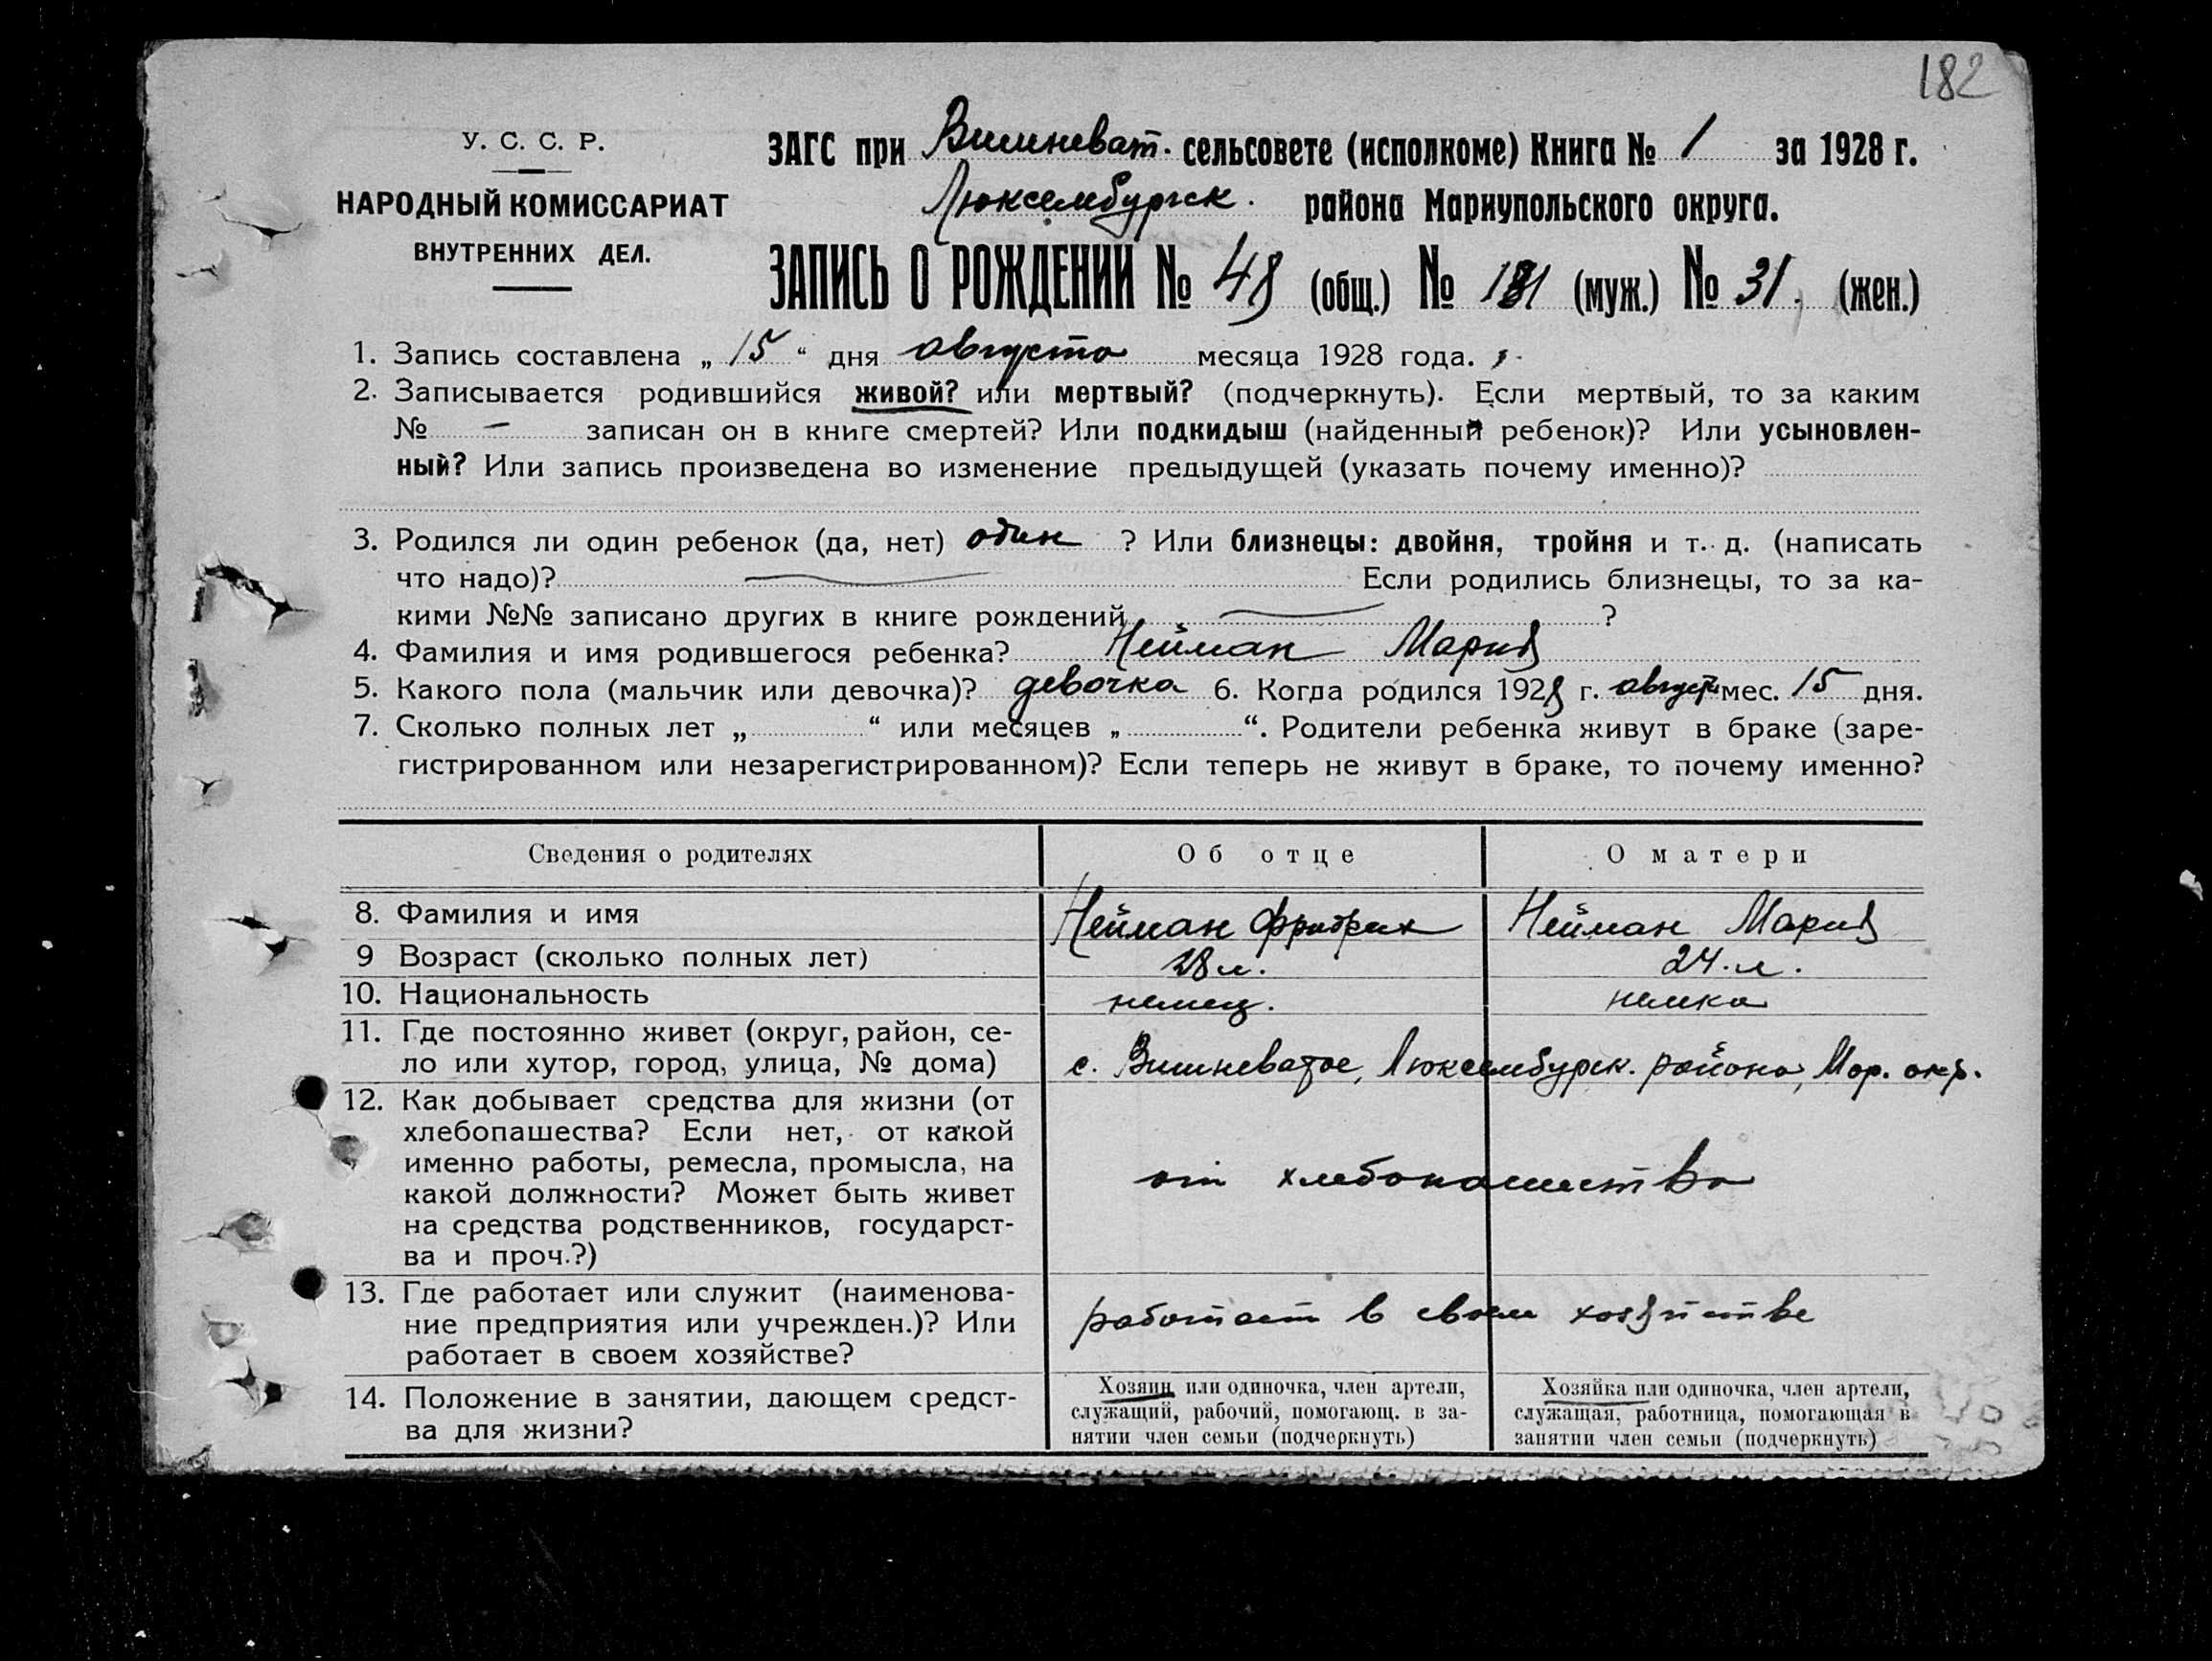 182
У. С. С. Р.
НАРОДНЫЙ КОМИССАРИАТ
ВНУТРЕННИХ ДЕЛ.
ЗАГС при Вишневат. сельсовете (исполкоме) Книга № 1 за 1928 г.
Люксембургск. района Мариупольского округа.
ЗАПИСЬ О РОЖДЕНИИ № 48 (общ.) № (муж.) № 31. (жен.)
1. Запись составлена „ 15 “ дня августа месяца 1928 года.
2. Записывается родившийся живой? или мертвый? (подчеркнуть). Если мертвый, то за каким
№ — записан он в книге смертей? Или подкидыш (найденный ребенок)? Или усыновлен-
ный? Или запись произведена во изменение предыдущей (указать почему именно)?
3. Родился ли один ребенок (да, нет) один ? Или близнецы: двойня, тройня и т. д. (написать
что надо)? — Если родились близнецы, то за ка-
кими №№ записано других в книге рождений — ?
4. Фамилия и имя родившегося ребенка? Нейман Мария
5. Какого пола (мальчик или девочка)? девочка 6. Когда родился 1928 г. август мес. 15 дня.
7. Сколько полных лет „ “ или месяцев „ “. Родители ребенка живут в браке (заре-
гистрированном или незарегистрированном)? Если теперь не живут в браке, то почему именно?
Сведения о родителях Об отце О матери
8. Фамилия и имя Нейман Фридрих Нейман Мария
9 Возраст (сколько полных лет) 28 л. 24. л.
10. Национальность немец. немка
11. Где постоянно живет (округ, район, се-
ло или хутор, город, улица, № дома) с. Вишневатое, Люксембурск. района, Мар. окр.
12. Как добывает средства для жизни (от
хлебопашества? Если нет, от какой
именно работы, ремесла, промысла, на
какой должности? Может быть живет
на средства родственников, государст-
ва и проч.?)
от хлебопашества
13. Где работает или служит (наименова-
ние предприятия или учрежден.)? Или
работает в своем хозяйстве?
работает в своем хозяйстве
14. Положение в занятии, дающем средст-
ва для жизни?
Хозяин или одиночка, член артели,
служащий, рабочий, помогающ. в за-
нятии член семьи (подчеркнуть)
Хозяйка или одиночка, член артели,
служащая, работница, помогающая в
занятии член семьи (подчеркнуть)